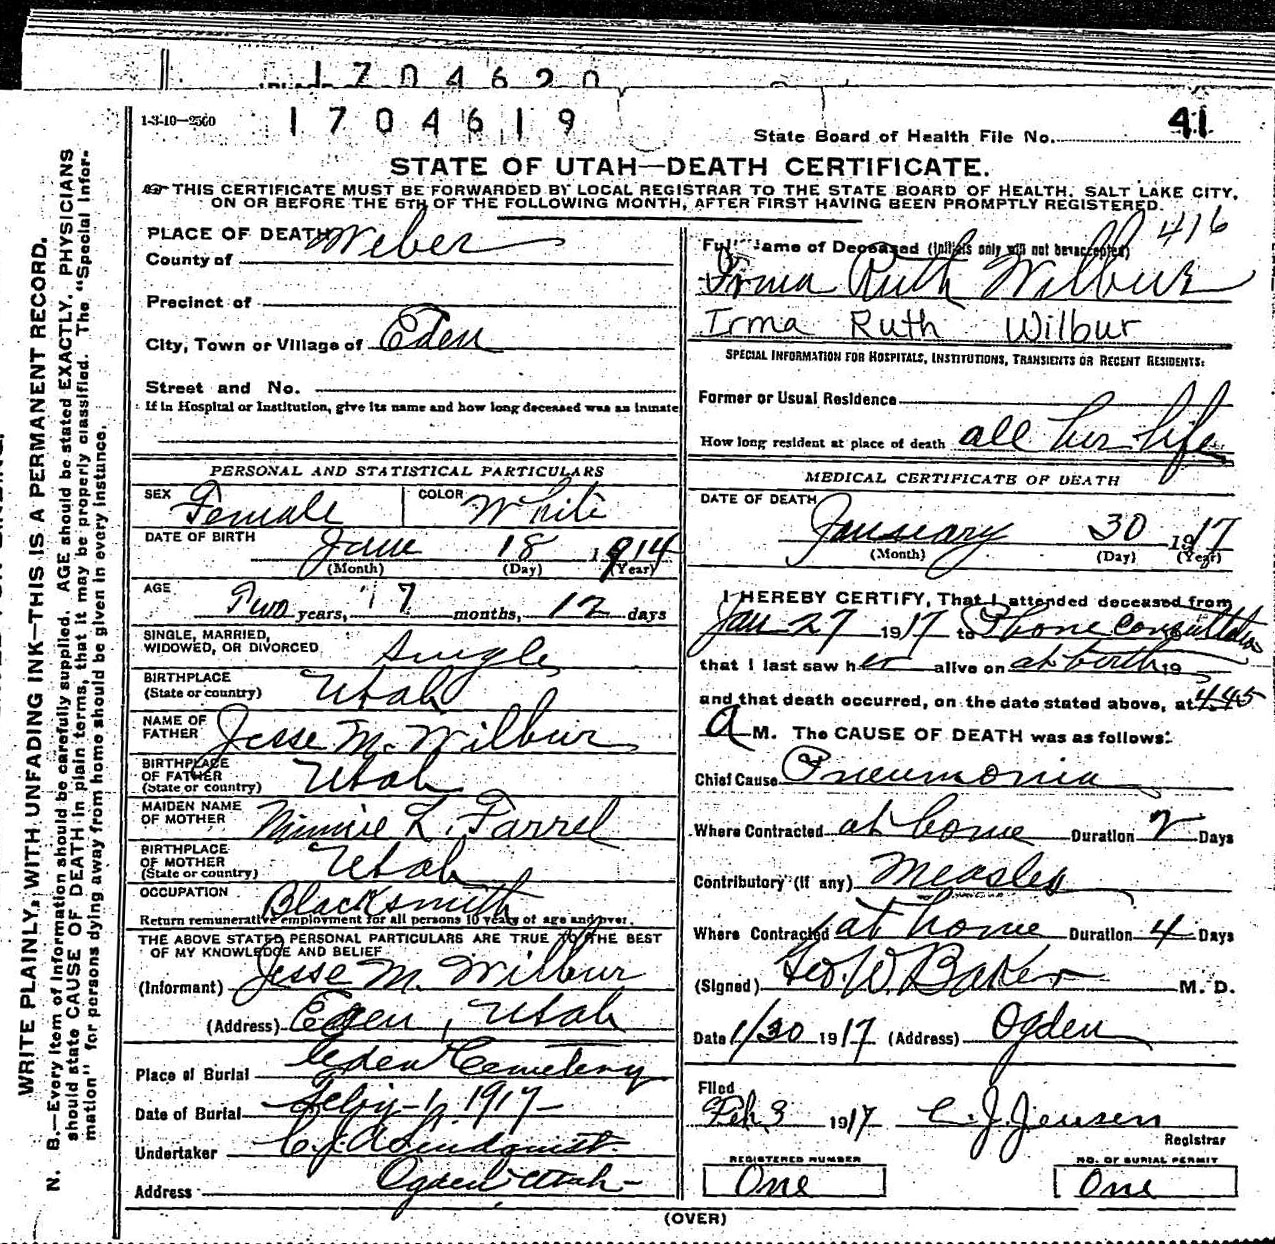 1704620
1-3-10—2500
1704619
State Board of Health File No. 41
STATE OF UTAH—DEATH CERTIFICATE.
THIS CERTIFICATE MUST BE FORWARDED BY LOCAL REGISTRAR TO THE STATE BOARD OF HEALTH, SALT LAKE CITY,
ON OR BEFORE THE 5TH OF THE FOLLOWING MONTH, AFTER FIRST HAVING BEEN PROMPTLY REGISTERED.
PLACE OF DEATH
County of Weber
Precinct of
City, Town or Village of Eden
Street and No.
If in Hospital or Institution, give its name and how long deceased was an inmate
PERSONAL AND STATISTICAL PARTICULARS
SEX Female COLOR White
DATE OF BIRTH June 18 1914
(Month) (Day) (Year)
AGE Two years, 7 months, 12 days
SINGLE, MARRIED,
WIDOWED, OR DIVORCED Single
BIRTHPLACE
(State or country) Utah
NAME OF
FATHER Jesse M. Wilbur
BIRTHPLACE
OF FATHER
(State or country) Utah
MAIDEN NAME
OF MOTHER Minnie L. Farrel
BIRTHPLACE
OF MOTHER
(State or country) Utah
OCCUPATION Blacksmith
Return remunerative employment for all persons 10 years of age and over.
THE ABOVE STATED PERSONAL PARTICULARS ARE TRUE TO THE BEST
OF MY KNOWLEDGE AND BELIEF
(Informant) Jesse M. Wilbur
(Address) Eden, Utah
Place of Burial Eden Cemetery
Date of Burial 1, 1917
Undertaker Lindquist
Address Ogden Utah
416
Full Name of Deceased (Initials only will not be accepted)
Irma Ruth Wilbur
Irma Ruth Wilbur
SPECIAL INFORMATION FOR HOSPITALS, INSTITUTIONS, TRANSIENTS OR RECENT RESIDENTS:
Former or Usual Residence
How long resident at place of death all her life
MEDICAL CERTIFICATE OF DEATH
DATE OF DEATH January 30 1917
(Month) (Day) (Year)
I HEREBY CERTIFY, That I attended deceased from
Jan 27 1917 to Phone consultation
that I last saw her alive on at birth 19
and that death occurred, on the date stated above, at 4.45
A M. The CAUSE OF DEATH was as follows:
Chief Cause Pneumonia
Where Contracted at home Duration 2 Days
Contributory (if any) Measles
Where Contracted at home Duration 4 Days
(Signed) Geo. W. Baker M. D.
Date 1/30 1917 (Address) Ogden
Filed
Feb. 3 1917 C. J. Jensen
Registrar
REGISTERED NUMBER NO. OF BURIAL PERMIT
One One
(OVER)
WRITE PLAINLY, WITH UNFADING INK—THIS IS A PERMANENT RECORD.
N. B.—Every item of information should be carefully supplied. AGE should be stated EXACTLY. PHYSICIANS
should state CAUSE OF DEATH in plain terms, that it may be properly classified. The "Special Infor-
mation" for persons dying away from home should be given in every instance.